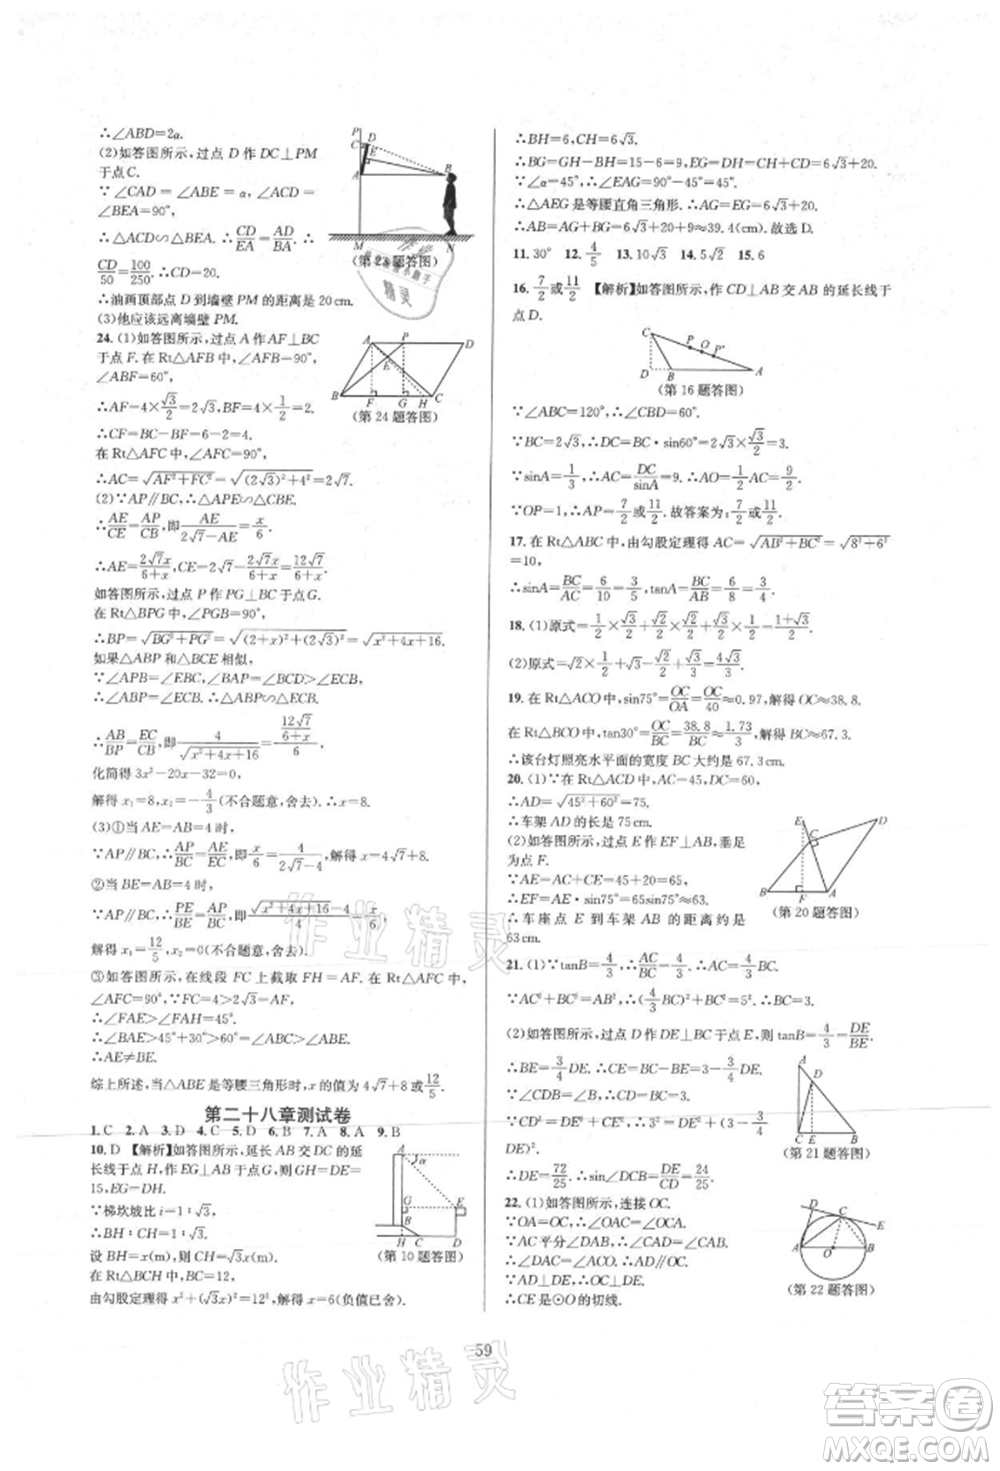 ∴∠ABD=2α.
(2)如答图所示,过点 D 作 DC⊥PM
于点 C.
∵∠CAD=∠ABE=α,∠ACD=
∠BEA=90°,
∴△ACD∽△BEA. ∴CD/EA=AD/BA.
∴CD/50=100/250. ∴CD=20.
∴油画顶部点 D 到墙壁 PM 的距离是 20 cm.
(3)他应该远离墙壁 PM.
(第 23 题答图)
24. (1)如答图所示,过点 A 作 AF⊥BC
于点 F. 在 Rt△AFB 中,∠AFB=90°,
∠ABF=60°,
∴AF=4×√3/2=2√3,BF=4×1/2=2.
∴CF=BC-BF=6-2=4.
在 Rt△AFC 中,∠AFC=90°,
∴AC=√(AF²+FC²)=√((2√3)²+4²)=2√7.
(第 24 题答图)
(2)∵AP∥BC,∴△APE∽△CBE.
∴AE/CE=AP/CB,即AE/(2√7-AE)=x/6.
∴AE=2√7x/(6+x),CE=12√7/(6+x).
如答图所示,过点 P 作 PG⊥BC 于点 G.
在 Rt△BPG 中,∠PGB=90°,
∴BP=√(BG²+PG²)=√((2+x)²+(2√3)²)=√(x²+4x+16).
如果△ABP 和△BCE 相似,
∵∠APB=∠EBC,∠BAP=∠BCD>∠ECB,
∴∠ABP=∠ECB. ∴△ABP∽△ECB.
∴AB/BP=EC/CB,即4/√(x²+4x+16)=(12√7/(6+x))/6.
化简得 3x²-20x-32=0.
解得 x₁=8,x₂=-4/3(不合题意,舍去). ∴x=8.
(3)①当 AE=AB=4 时,
∵AP∥BC,∴AP/BC=AE/EC,即x/6=4/(2√7-4),解得 x=4√7+8.
②当 BE=AB=4 时,
∵AP∥BC,∴PE/BE=AP/BC,即(√(x²+4x+16)-4)/4=x/6.
解得 x₁=12/5,x₂=0(不合题意,舍去).
③如答图所示,在线段 FC 上截取 FH=AF. 在 Rt△AFC 中,
∠AFC=90°,∵FC=4>AF=2√3,
∴∠FAE>∠FAH=45°.
∴∠BAE>45°+30°>60°=∠ABC>∠ABE.
∴AE≠BE.
综上所述,当△ABE 是等腰三角形时,x 的值为 4√7+8 或12/5.
第二十八章测试卷
1. C 2. A 3. D 4. C 5. D 6. B 7. A 8. A 9. B
10. D 【解析】如答图所示,延长 AB 交 DC 的延
长线于点 H,作 EG⊥AB 于点 G,则 GH=DE=
15,EG=DH.
∵梯坎坡比 i=1∶√3,
∴BH∶CH=1∶√3.
设 BH=x(m),则 CH=√3x(m).
在 Rt△BCH 中,BC=12,
由勾股定理得 x²+(√3x)²=12²,解得 x=6(负值已舍).
(第 10 题答图)
∴BH=6,CH=6√3.
∴BG=GH-BH=15-6=9,EG=DH=CH+CD=6√3+20.
∵∠α=45°,∴∠EAG=90°-45°=45°.
∴△AEG 是等腰直角三角形. ∴AG=EG=6√3+20.
∴AB=AG+BG=6√3+20+9≈39.4(cm). 故选 D.
11. 30° 12. 4/5 13. 10√3 14. 5√2 15. 6
16. 7/2或11/2 【解析】如答图所示,作 CD⊥AB 交 AB 的延长线于
点 D.
(第 16 题答图)
∵∠ABC=120°,∴∠CBD=60°.
∵BC=2√3,∴DC=BC·sin60°=2√3×√3/2=3.
∵sinA=1/3,∴AC=DC/sinA=9. ∴AO=1/2AC=9/2.
∵OP=1,∴AP=7/2或11/2. 故答案为:7/2或11/2.
17. 在 Rt△ABC 中,由勾股定理得 AC=√(AB²+BC²)=√(8²+6²)
=10,
∴sinA=BC/AC=6/10=3/5,tanA=BC/AB=6/8=3/4.
18. (1)原式=1/2+1/2×√3=1/2+√3/2=(1+√3)/2.
(2)原式=√2×1/√2+√3-√3/2=1+√3/2=(2+√3)/2.
19. 在 Rt△ACO 中,sin75°=OC/OA=OC/40≈0.97,解得 OC≈38.8.
在 Rt△BCO 中,tan30°=OC/BC=38.8/BC≈1.73/3,解得 BC≈67.3.
∴该台灯照亮水平面的宽度 BC 大约为 67.3 cm.
20. (1)∵在 Rt△ACD 中,AC=45,DC=60,
∴AD=√(45²+60²)=75.
∴车架 AD 的长是 75 cm.
(2)如答图所示,过点 E 作 EF⊥AB,垂足
为点 F.
∵AE=AC+CE=45+20=65.
∴EF=AE·sin75°=65sin75°≈63.
∴车座点 E 到车架 AB 的距离约是
63 cm.
(第 20 题答图)
21. (1)∵tanB=4/3=AC/BC,∴AC=4/3BC.
∵AC²+BC²=AB²,∴(4/3BC)²+BC²=10²,解得 BC=6.
(2)如答图所示,过点 D 作 DE⊥BC 于点 E,则 tanB=4/3=DE/BE.
∴BE=3/4DE. ∴CE=BC-BE=6-3/4DE.
∵DE²+CE²=CD²,∴DE²+(6-3/4DE)²=
CD²=6².
∴DE=72/25. ∴sin∠DCB=DE/CD=24/25.
(第 21 题答图)
22. (1)如答图所示,连接 OC.
∵OA=OC,∴∠OCA=∠OAC.
∵AC 平分∠DAB,∴∠DAC=∠OAC.
∴∠DAC=∠OCA. ∴AD∥OC.
∵∠ADC=90°,∴∠OCE=90°.
∴CE 是⊙O 的切线.
(第 22 题答图)
59
作业精灵
作业精灵
答案卷
MXQE.COM